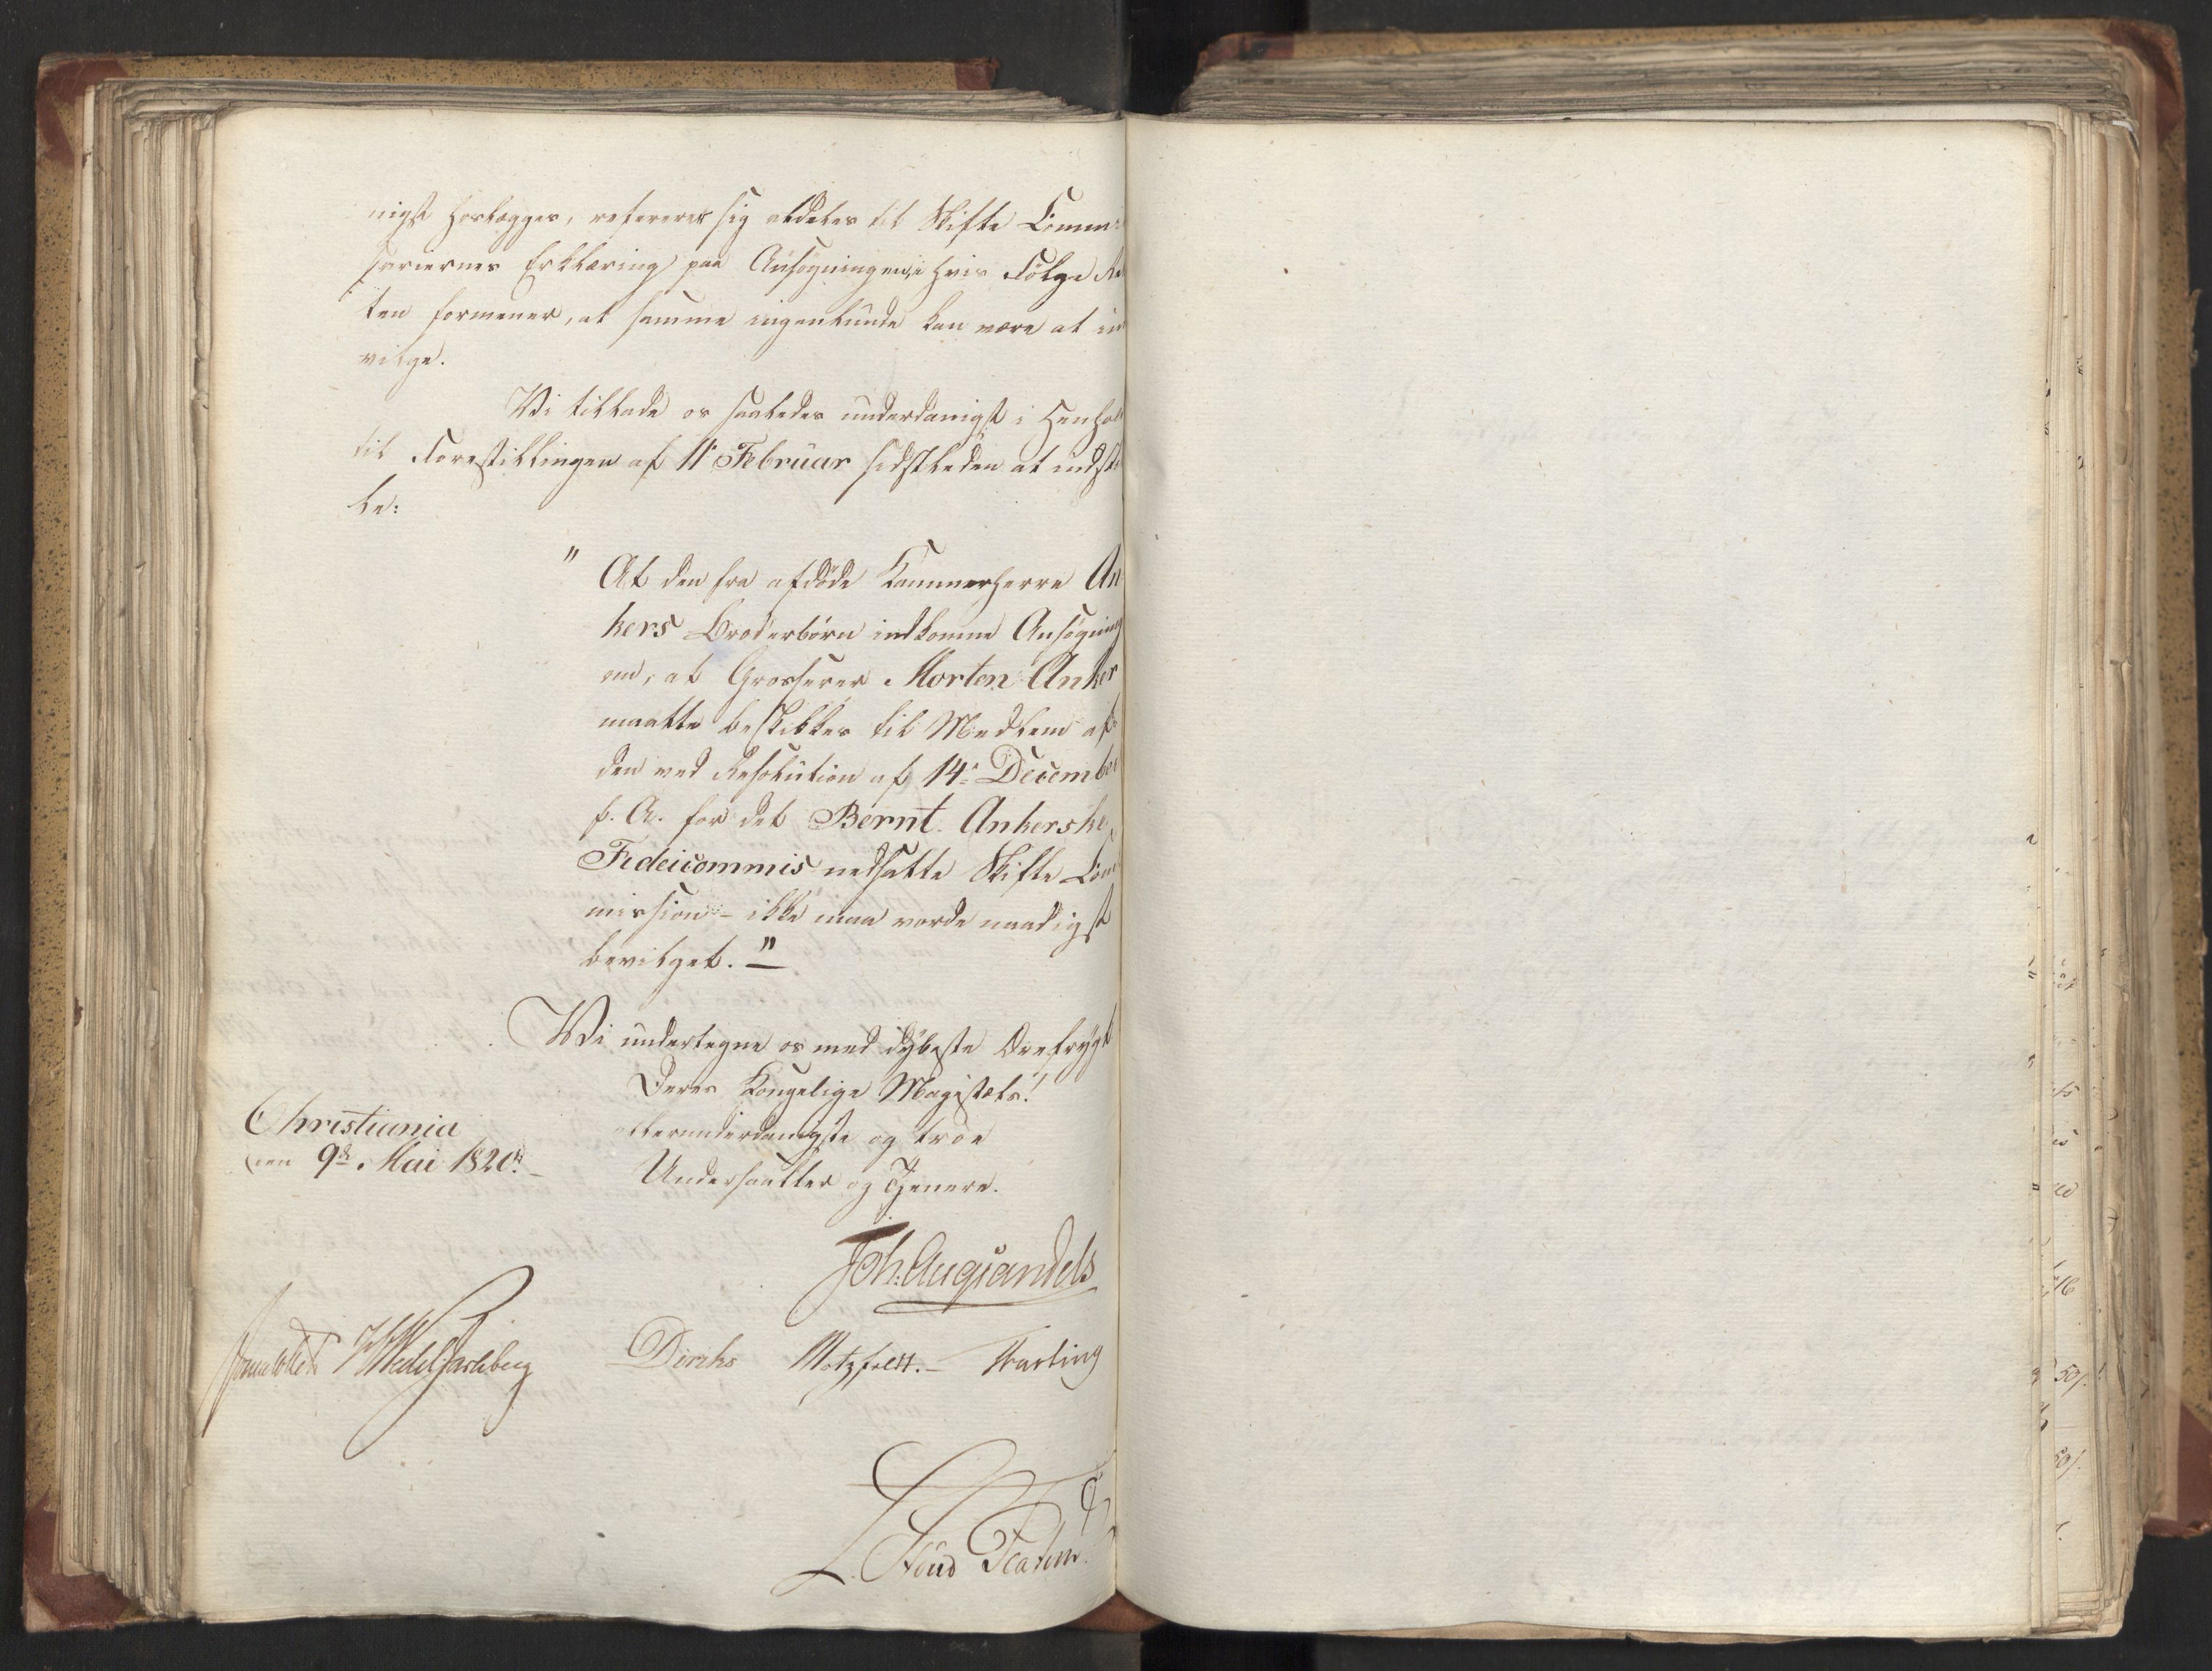 nigst hoslægges, refererer sig aldeles til Skifte Commis
sariernes Erklæring paa Ansøgningen, i hvis Følge Ret
ten formener, at samme ingenlunde kan være at ind
vilge.
Vi tillade os saaledes underdanigst i Henhold
til Forestillingen af 11 Februar sidstleden at indstil
le:
" At den fra afdøde Kammerherre An
kers Broderbørn indkomne Ansøgning
om, at Grosserer Morten Anker
maatte beskikkes til Medlem af
den ved Resolution af 14: December
f. A. for det Bernt Ankerske
Fideicommis nedsatte Skifte Com
mission – ikke maa vorde naadigst
bevilget."
Vi undertegne os med dybeste Ærefrygt
Deres Kongelige Majestæts!
allerunderdanigste og troe
Undersaatter og Tjenere.
Christiania
den 9de Mai 1820.
Joh: Aug: Sandels
Sommerhielm HWedelJarlsberg
Diriks Motzfeldt. – Fasting